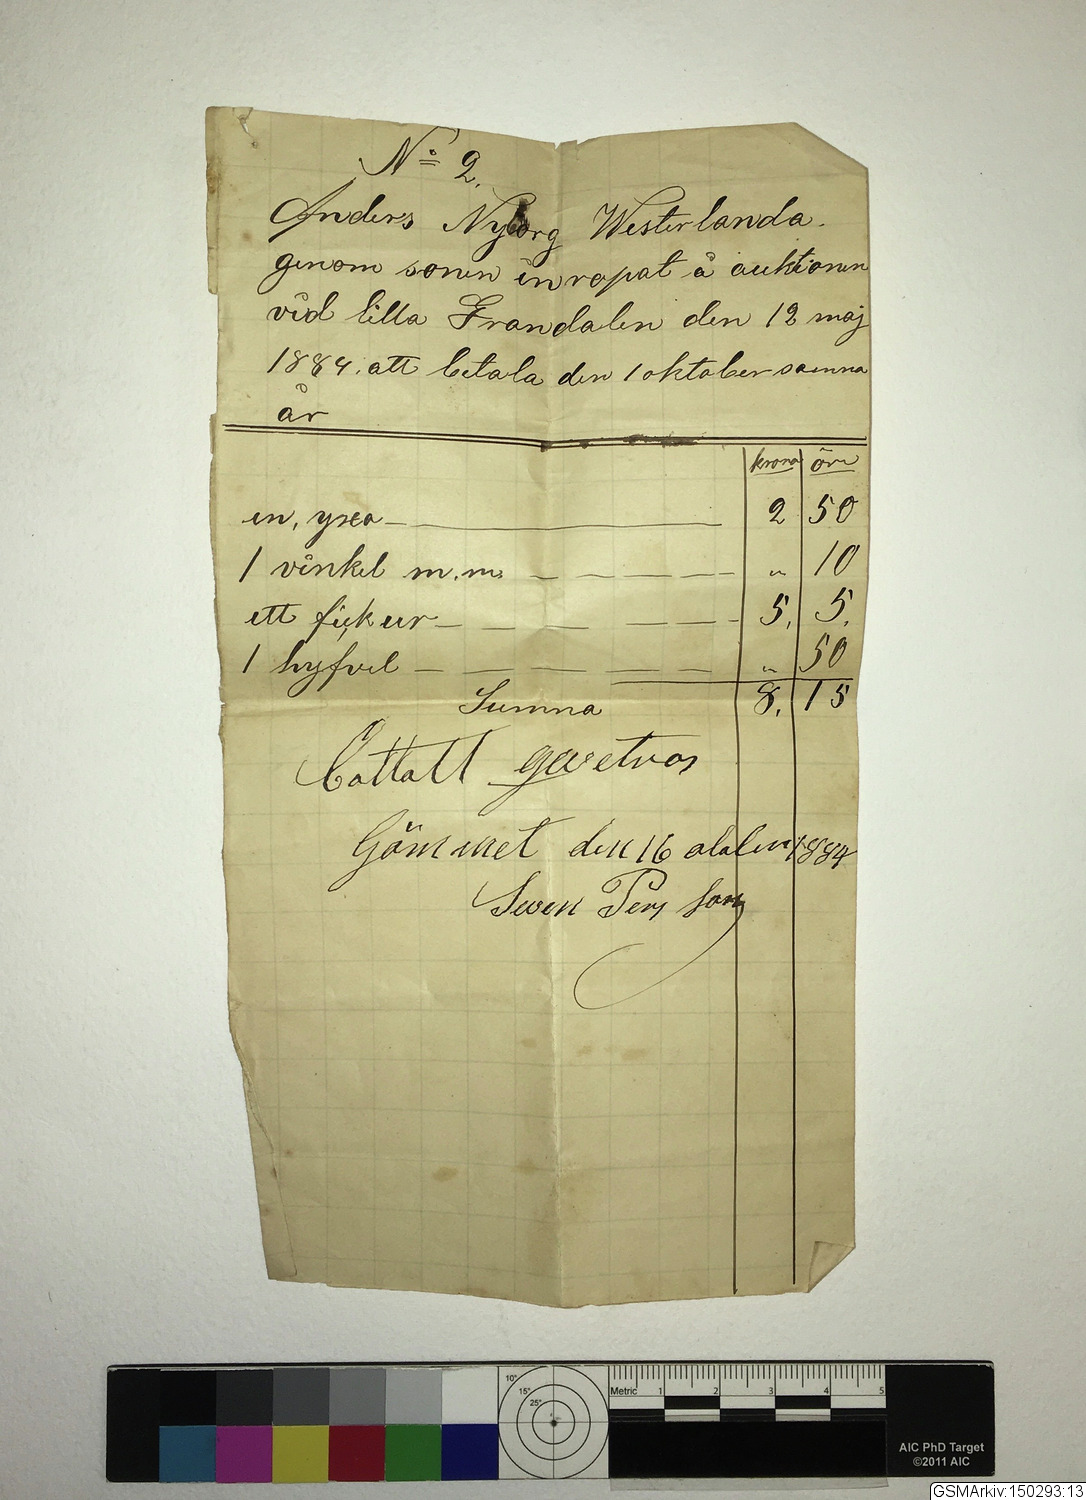 No 2.
Anders Nyborg Westerlanda.
genom sonen inropat å auktionen
vid lilla Grandalen den 12 maj
1884. att betala den 1 oktober samma
år
krona öre
en, yxa 2 50
1 vinkel m.m. " 10
ett fickur 5, 5,
1 hyfvel " 50
Summa 8, 15
den 16 1884
Swen Pers son
10°
15°
25°
Metric 1 2 3 4 5
AIC PhD Target
©2011 AIC
GSMArkiv:150293:13